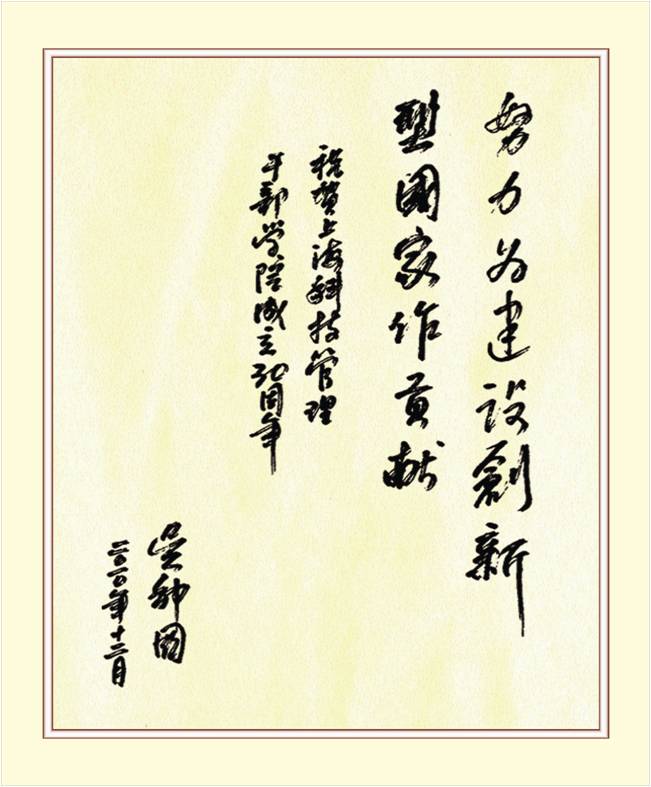 努力为建设創新
型國家作贡献
祝贺上海科技管理
干部学院成立30周年
二〇一〇年十二月